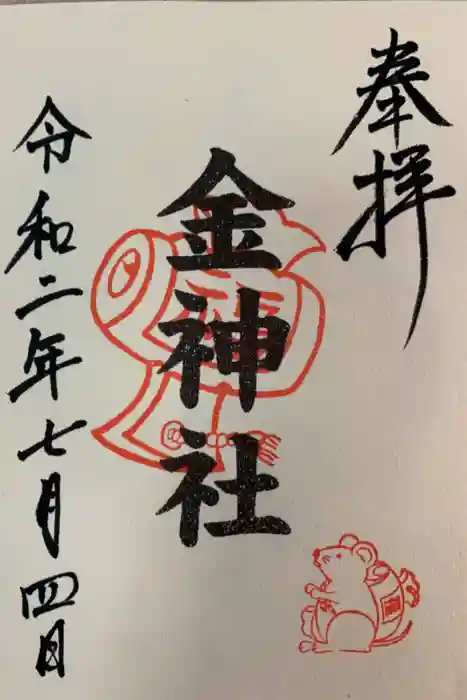 奉拝
金神社
令和二年七月四日